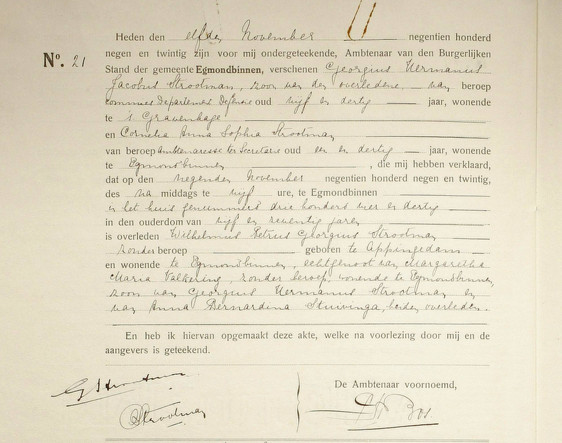 Heden den elfden November negentien honderd
Nº. 21
negen en twintig zijn voor mij ondergeteekende, Ambtenaar van den Burgerlijken
Stand der gemeente Egmondbinnen, verschenen Georgius Hermanus
Jacobus Strootman, zoon van den overledene van beroep
commies Departement Defensie oud vijf en dertig jaar, wonende
te 's Gravenhage
en Cornelia Anna Sophia Strootman
van beroep Ambtenaresse ter Secretarie oud een en dertig jaar, wonende
te Egmondbinnen, die mij hebben verklaard,
dat op den negenden November negentien honderd negen en twintig,
des na middags te vijf ure, te Egmondbinnen
in het huis genummerd drie honderd vier en dertig
in den ouderdom van vijf en zeventig jaren
is overleden Wilhelmus Petrus Georgius Strootman
zonder beroep geboren te Appingedam
en wonende te Egmondbinnen, echtgenoot van Margaretha
Maria Valkering, zonder beroep, wonende te Egmondbinnen,
zoon van Georgius Hermanus Strootman en
van Anna Bernardina Stuivinga, beiden overleden.
En heb ik hiervan opgemaakt deze akte, welke na voorlezing door mij en de
aangevers is geteekend.
De Ambtenaar voornoemd,
G Strootman
Strootman
Bos